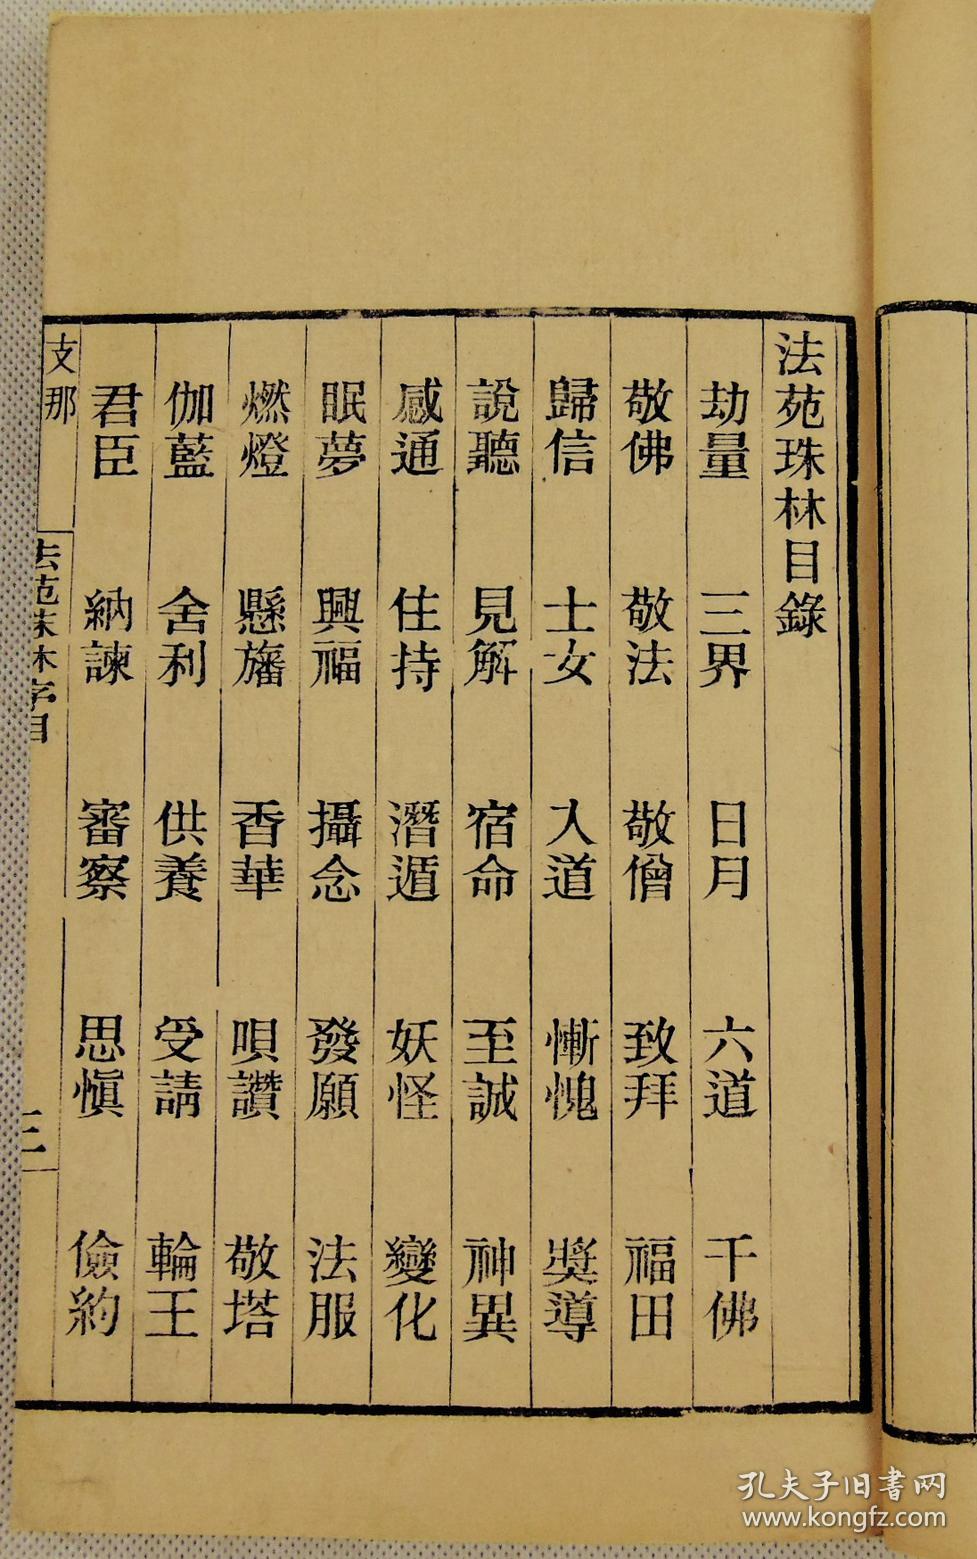 法苑珠林目錄
劫量 三界 日月 六道 千佛
敬佛 敬法 敬僧 致拜 福田
歸信 士女 入道 慚愧 奬導
說聽 見解 宿命 至誠 神異
感通 住持 潛遁 妖怪 變化
眠夢 興福 攝念 發願 法服
燃燈 懸旛 香華 唄讚 敬塔
伽藍 舍利 供養 受請 輪王
君臣 納諫 審察 思慎 儉約
支那
法苑珠林序目
孔夫子旧書网
www.kongfz.com